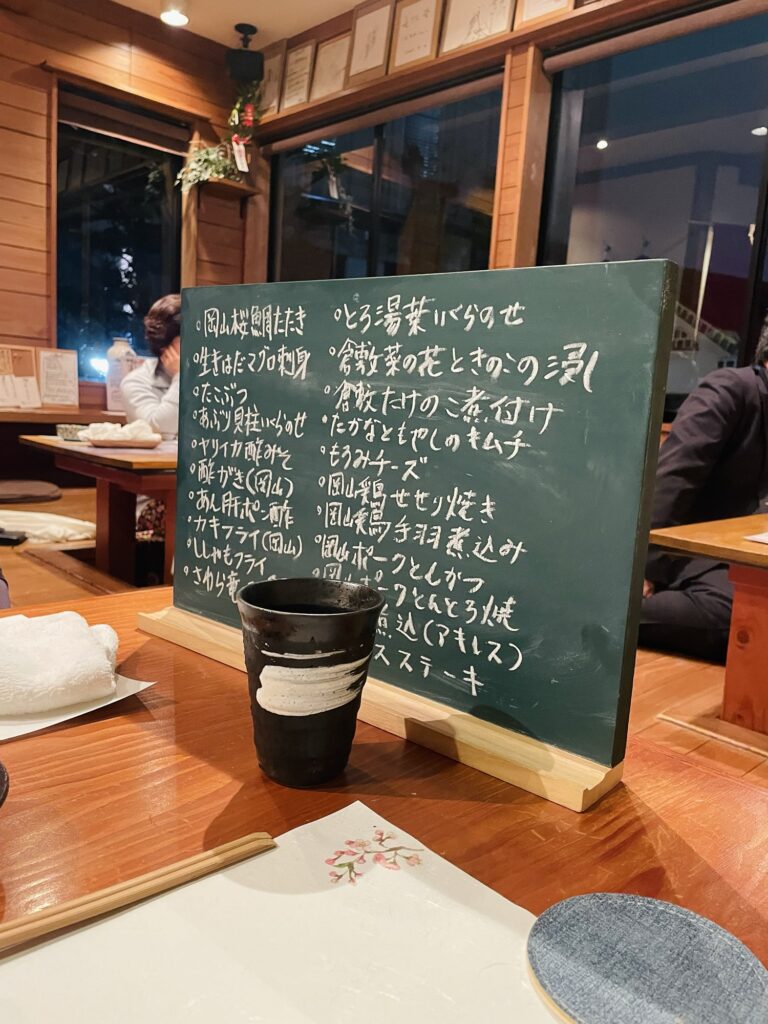 。岡山桜鯛たたき
。生きはだマグロ刺身
。たこぶつ
。あぶり貝柱いくらのせ
。ヤリイカ酢みそ
。酢がき(岡山)
。あん肝ポン酢
。カキフライ(岡山)
。ししゃもフライ
。さわら竜
。とろ湯葉いくらのせ
。倉敷菜の花ときのこの浸し
。倉敷たけのこ煮付け
。たかなともやしのキムチ
。もろみチーズ
。岡山鶏せせり焼き
。岡山鶏手羽煮込み
。岡山ポークとんかつ
。岡山ポークとんとろ焼
煮込(アキレス)
スステーキ